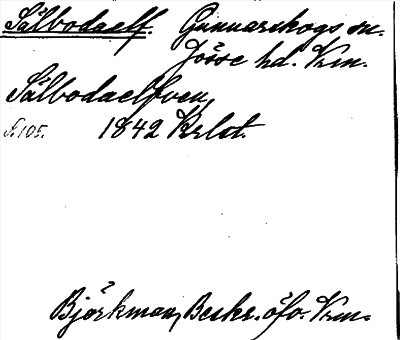 Sälbodaelf. Gunnarskogs sn.
Jösse hd. Vrm.
Sälbodaelfven
S. 105. 1842 Krlst.
Björkman, Beskr. öfv. Vrm.